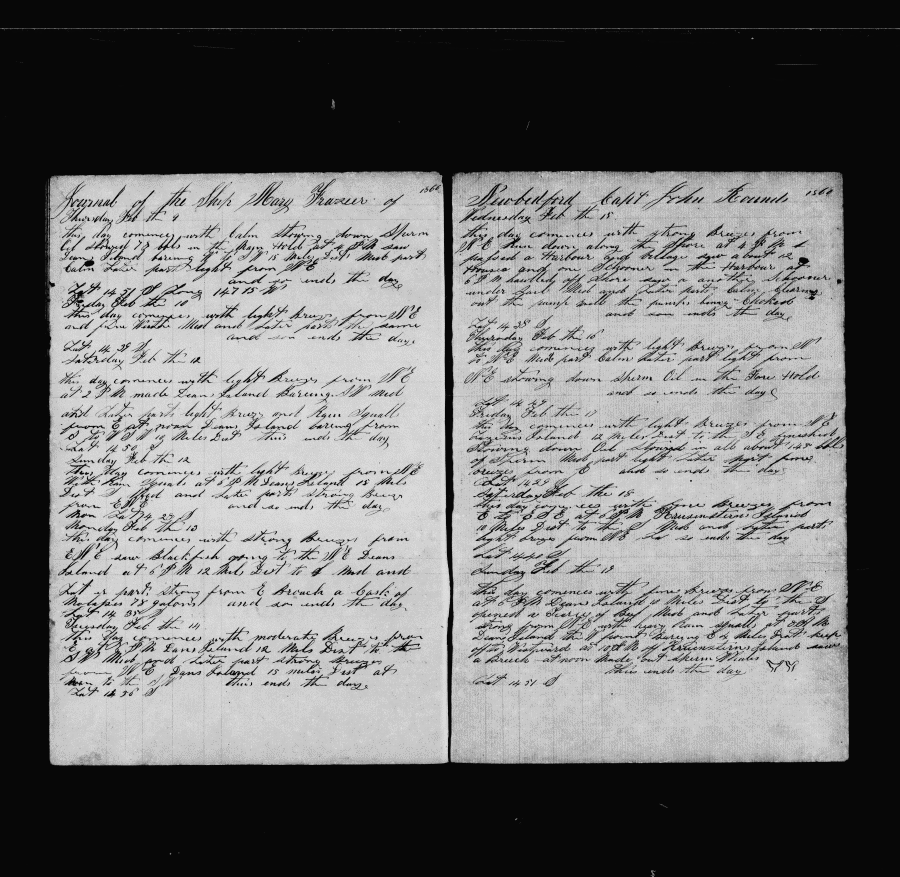 Journal of the Ship Mary Frazier of 1860
Thursday Feb th 9
this day commences with Calm Stowing down Sperm
Oil stowed 78 bbls in the Main Hold at 4 P M saw
Deans Island baring S W 15 Miles Dist Mid part
Calm Later part light from N E
and so ends the day
Lat 14 51 S Long 147 15 W
Friday Feb th 10
this day comences with light Breeze from N E
and fine Weather Mid and Later parts the same
and son ends the day
Lat 14 38 S
Saturday Feb th
this day comences with light Breezes from N E
at 2 P M made Deans Island Baring S W Mid
and Later parts light Breeze and Rain Squall
from E at noon Deans Island baring from
S to W S W 10 Miles Dist this ends the day
Lat 14 50 S
Sunday Feb th 12
this Day comences with light Breezes from N E
With Rain Squals at 6 P M Deans Island 15 Miles
Dist S Mid and Later parts strong Breeze
from E N E and so ends the day
Lat 14 29 S
Monday Feb th 13
this day comences with strong Breezes from
E N E saw Blackfish going to the N E Deans
Island at 6 P M 12 Miles Dist to S Mid and
Lat er part strong from E Broach a Cask of
Molases 78 galons and son ends the day
Lat 14 35 S
Tuesday Feb th 14
this Day comences with moderate Breezes from
E at 6 P M Deans Island 12 Miles Dist to the
S W Mid and Later part strong Breezes
from N E Deans Island 15 miles Dist at
Noon to the S W this ends the day
Lat 14 56 S
Newbedford Capt John Rounds 1860
Wednesday Feb th 15
this day comences with strong Breezes from
N E Run down along the shore at 4 P M
passed a Harbour and Vilage saw about 12
Houses and one Schooner in the Harbour at
6 P M hauled off Shore saw a nother Schooner
under Land Mid and Later part Calm Clearing
out the pump well the pumps being Choked
and son ends the day
Lat 14 38 S
Thursday Feb th 16
this day comences with light Breezes from N
to N E Mid part Calm Later part light from
N E stowing down Sperm Oil in the Fore Hold
and so ends the day
Lat 14 29
Friday Feb th 17
this day comences with light Breezes from N E
Island 12 Miles Dist to the S E
Stowing down Oil Stowed all about 145 bbls
of Sperm Mid part light Later part fine
breezes from E and so ends the day
Lat 14 29 S
Saturday Feb the 18
this day comences with fine Breezes from
E to E S E at 6 P M Krusensterns Island
10 Miles Dist to the Mid and Later part
light Breezes from N E So so ends the day
Lat S
Sunday Feb th 19
this day comences with fine Breezes from N E
at 6 P M Deans Island 15 Miles Dist to the S
opened a Tearse of Beef Mid and Later part
strong from N E with heavy Rain squalls at
Deans Island the W point Baring E 8 Miles Dist keep
off to Westward at 10 of Krusensterns Island saw
a breach at noon made out Sperm Whales
this ends the day
Lat 14 51 S